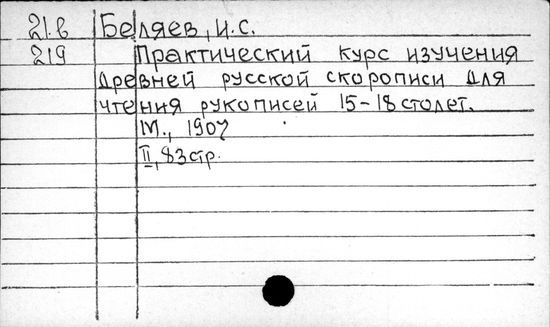 21.в Беляев, И.С.
219 Практический курс изучения
древней русской скорописи для
чтения рукописей 15-18 столет.
М., 1907
II, 83 стр.